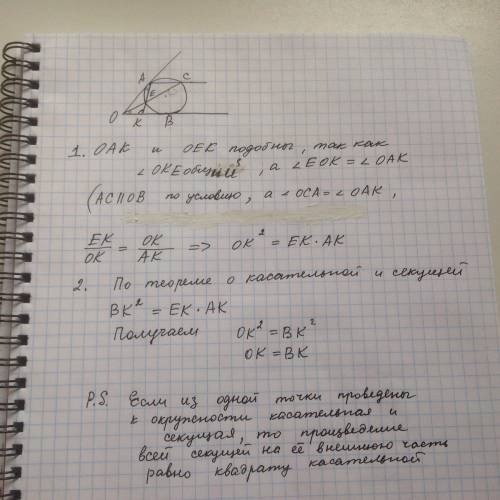 A C
E
O K B
1. OAK и OEK подобны, так как
∠OKE общий, а ∠EOK = ∠OAK
(AC||OB по условию, а ∠OCA = ∠OAK,
EK/OK = OK/AK => OK² = EK·AK
2. По теореме о касательной и секущей
BK² = EK·AK
Получаем OK² = BK²
OK = BK
P.S. Если из одной точки проведены
к окружности касательная и
секущая, то произведение
всей секущей на её внешнюю часть
равно квадрату касательной